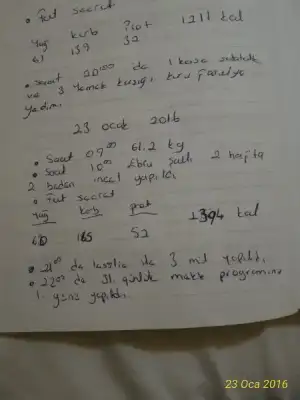 • Fat secret
Yağ karb Prot 1211 kal
61 139 32
• Saat 20:00 da 1 kase salatalık
ve 3 yemek kaşığı kuru fasulye
yedim.
23 Ocak 2016
• Saat 09:00 61.2 kg
• Saat 10:00 Ebru Şallı 2 hafta
2 beden incel yapıldı
• Fat secret
Yağ karb prot 1394 kal
60 165 52
• 21:00 da leslie ile 3 mil yapıldı.
• 22:00 da 21 günlük makle programının
1. günü yapıldı.
23 Oca 2016